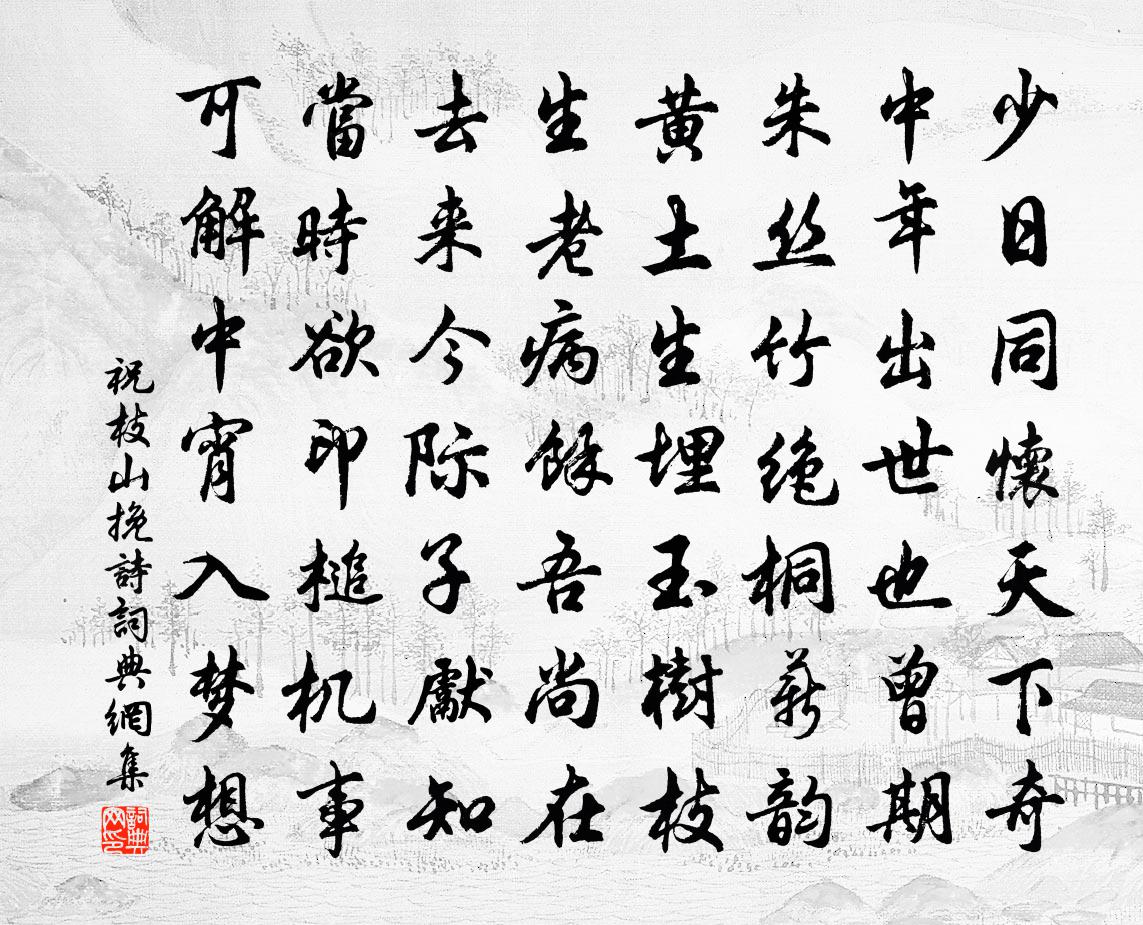 少日同懷天下奇
中年出世也曾期
朱丝竹绝桐薪韵
黄土生埋玉樹枝
生老病餘吾尚在
去来今际子獻知
當時欲印槌机事
可解中宵入梦想
祝枝山挽詩詞典網集
詞典网印